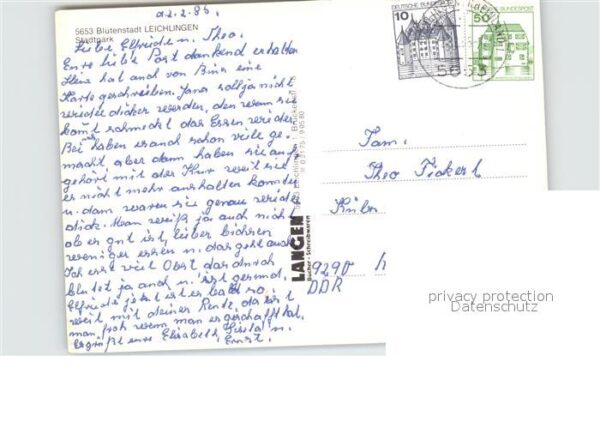 5653 Blütenstadt LEICHLINGEN
Stadtpark
12.2.86.
Liebe Elfriede u. Theo.
Eure liebe Post dankend erhalten
hat auch von eine
Karte geschrieben. soll ja nicht
wieder dicker werden, den wenn sie
schmeckt das Essen wieder.
Bei haben er auch schon viele ge¬
macht aber dann haben sie auf
gehört mit der Kur weil sie
es nicht mehr aushalten konnten
u. dann waren sie genau wieder
dick. Man weiß ja auch nicht
ob es gut ist, lieber bißchen
weniger essen u. das geht auch
Ich esse viel Obst das
ja auch u. ist gesund.
Elfriede jetzt ist es bald so
weit mit deiner Rente, da ist
man froh wenn man es geschafft hat.
Es grüßt euch Elisabeth, Gisela u.
Ernst.
10
DEUTSCHE BUNDESPOST
50
5653
Fam.
Theo Fickert
9290
DDR
LANGEN
Bücher - Schreibwaren
5653 Leichlingen 1, Brückenstr.
privacy protection
Datenschutz